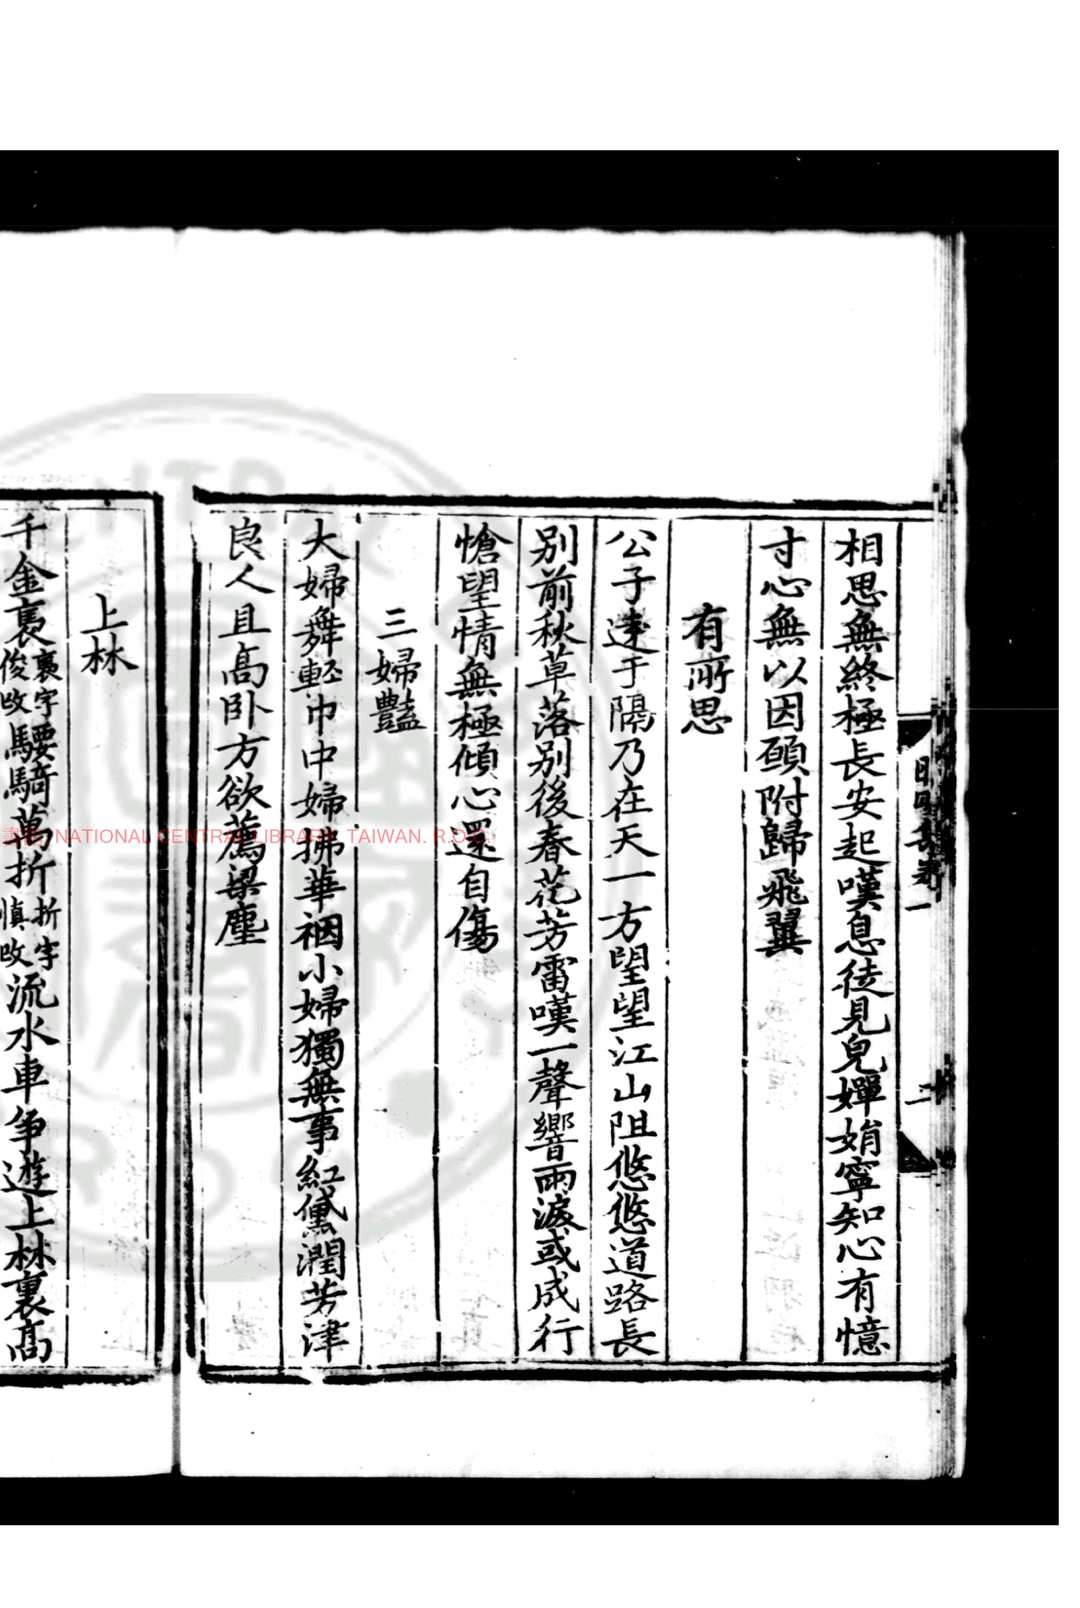 相思無終極長安起嘆息徒見皃嬋娟寧知心有憶
寸心無以因願附歸飛翼
有所思
公子遠于隔乃在天一方望望江山阻悠悠道路長
別前秋草落別後春花芳雷嘆一聲響雨淚或成行
愴望情無極傾心還自傷
三婦豔
大婦舞輕巾中婦拂華裀小婦獨無事紅黛潤芳津
良人且高卧方欲薦梁塵
上林
千金裹裹字俊攺騕騎萬折折字慎攺流水車爭遊上林裏高
NATIONAL CENTRAL LIBRARY, TAIWAN. R.O.C.